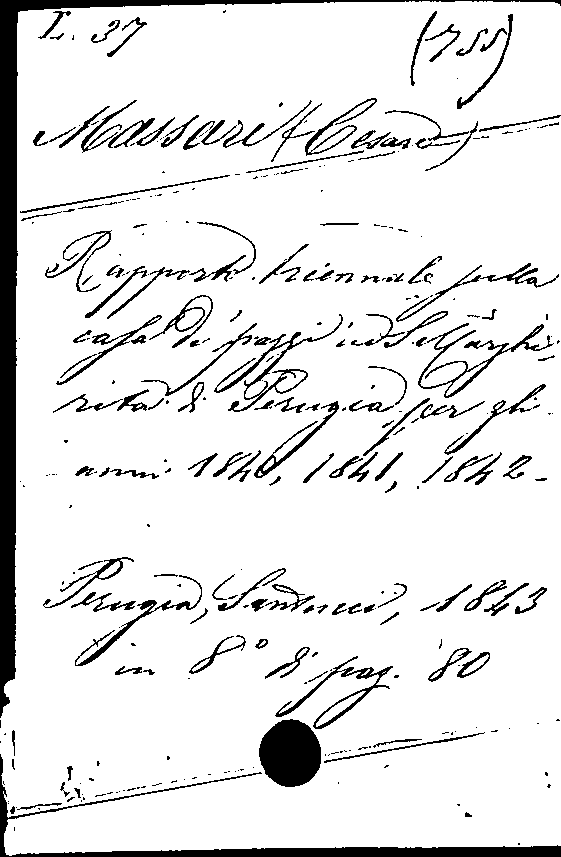 L. 37 (755)
Massari (Cesare)
Rapporto triennale sulla
casa di pazzi in S. Marghe-
rita di Perugia per gli
anni 1840, 1841, 1842-
Perugia, Santucci, 1843
in 8° di pag. 80